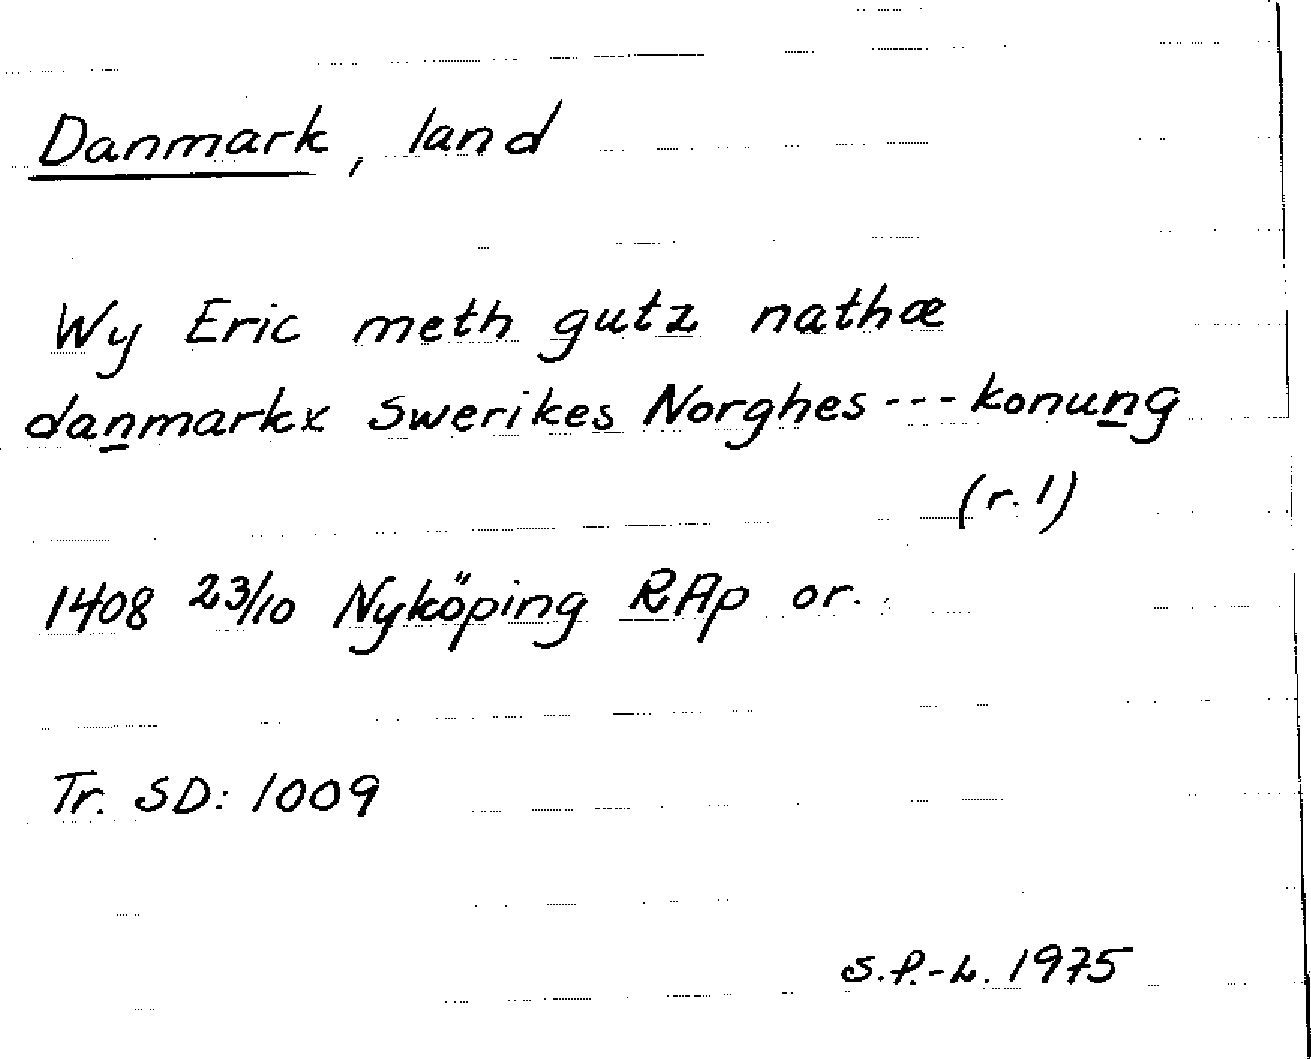 Danmark, land
Wy Eric meth gutz nathæ
danmarkx Swerikes Norghes --- konung
(r. 1)
1408 23/10 Nyköping RAp or.
Tr. SD: 1009
S.P.-L. 1975